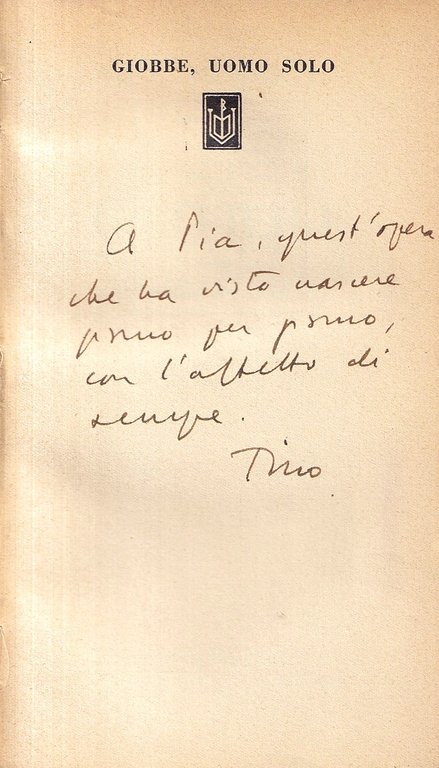 GIOBBE, UOMO SOLO
A Pia, quest'opera
che ha visto nascere
giorno per giorno,
con l'affetto di
sempre.
Tino